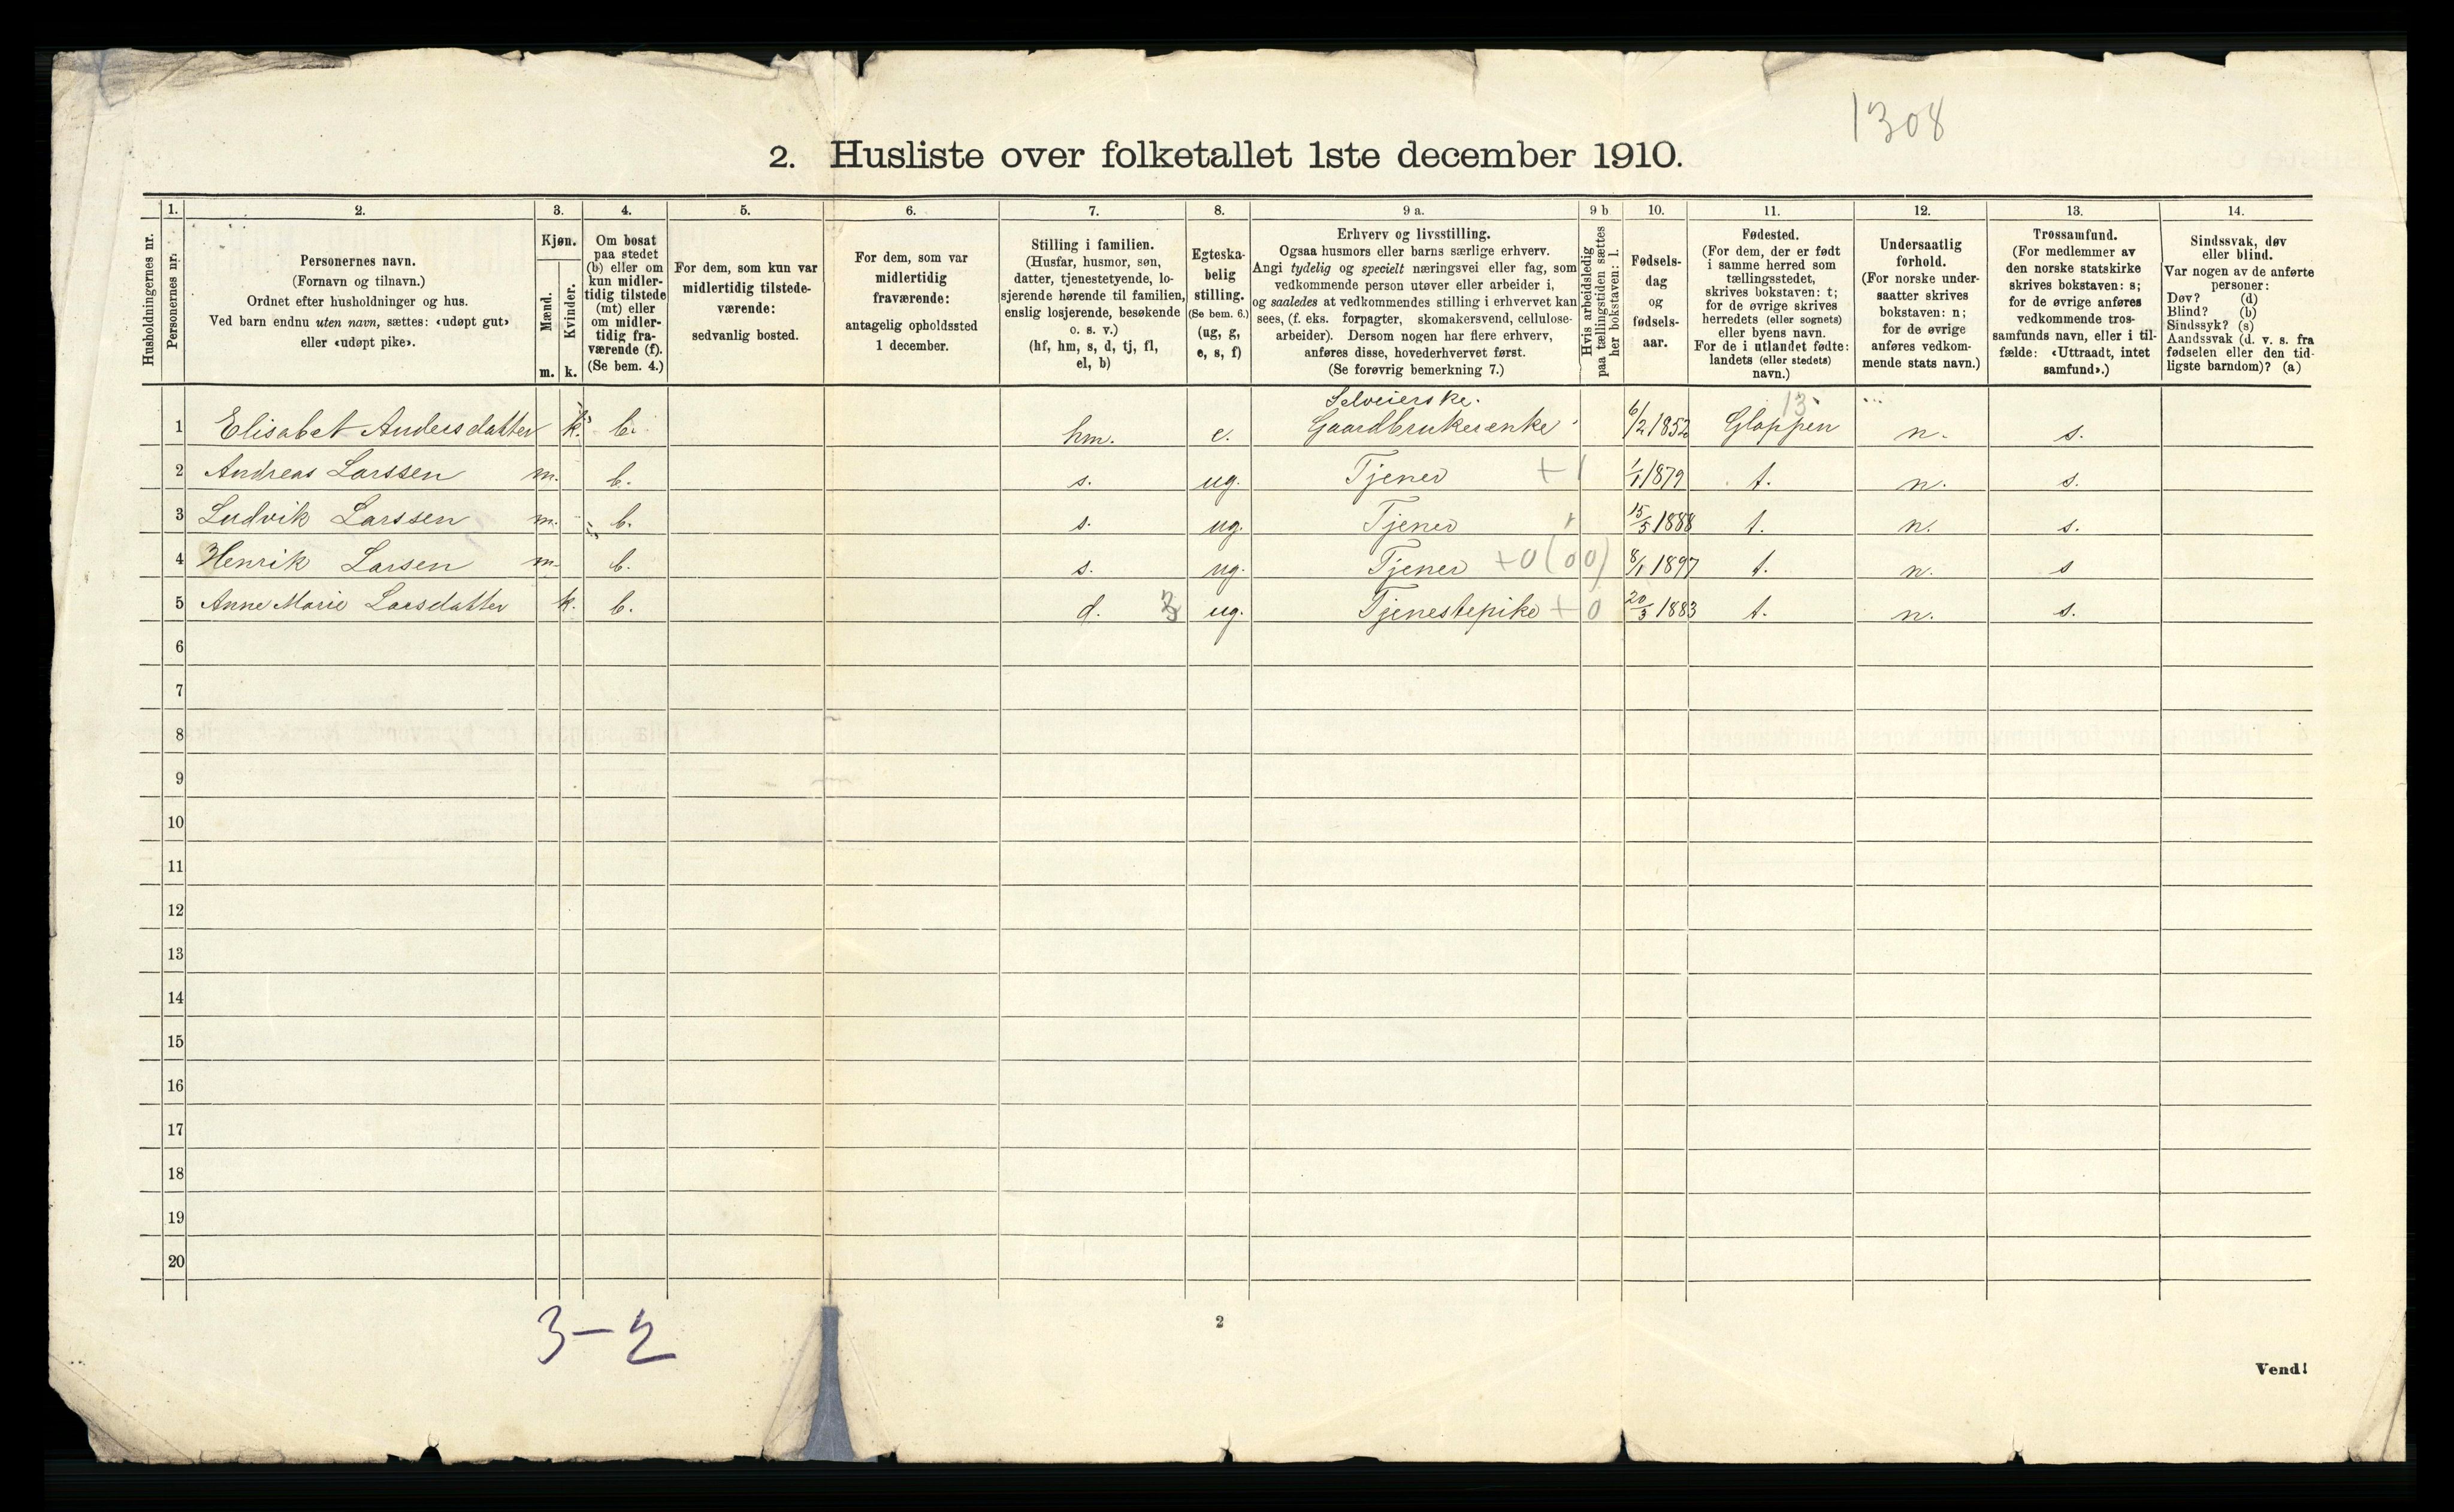 1308
2. Husliste over folketallet 1ste december 1910.
Husholdningernes nr.
1.
Personernes nr.
2.
Personernes navn.
(Fornavn og tilnavn.)
Ordnet efter husholdninger og hus.
Ved barn endnu uten navn, sættes: «udøpt gut»
eller «udøpt pike».
3.
Kjøn.
Mænd.
Kvinder.
m. k.
4.
Om bosat
paa stedet
(b) eller om
kun midler-
tidig tilstede
(mt) eller
om midler-
tidig fra-
værende (f).
(Se bem. 4.)
5.
For dem, som kun var
midlertidig tilstede-
værende:
sedvanlig bosted.
6.
For dem, som var
midlertidig
fraværende:
antagelig opholdssted
1 december.
7.
Stilling i familien.
(Husfar, husmor, søn,
datter, tjenestetyende, lo-
sjerende hørende til familien,
enslig losjerende, besøkende
o. s. v.)
(hf, hm, s, d, tj, fl,
el, b)
8.
Egteska-
belig
stilling.
(Se bem. 6.)
(ug, g,
e, s, f)
9 a.
Erhverv og livsstilling.
Ogsaa husmors eller barns særlige erhverv.
Angi tydelig og specielt næringsvei eller fag, som
vedkommende person utøver eller arbeider i,
og saaledes at vedkommendes stilling i erhvervet kan
sees, (f. eks. forpagter, skomakersvend, cellulose-
arbeider). Dersom nogen har flere erhverv,
anføres disse, hovederhvervet først.
(Se forøvrig bemerkning 7.)
9 b
Hvis arbeidsledig
paa tællingstiden sættes
her bokstaven: l.
10.
Fødsels-
dag
og
fødsels-
aar.
11.
Fødested.
(For dem, der er født
i samme herred som
tællingsstedet,
skrives bokstaven: t;
for de øvrige skrives
herredets (eller sognets)
eller byens navn.
For de i utlandet fødte:
landets (eller stedets)
navn.)
12.
Undersaatlig
forhold.
(For norske under-
saatter skrives
bokstaven: n;
for de øvrige
anføres vedkom-
mende stats navn.)
13.
Trossamfund.
(For medlemmer av
den norske statskirke
skrives bokstaven: s;
for de øvrige anføres
vedkommende tros-
samfunds navn, eller i til-
fælde: «Uttraadt, intet
samfund».)
14.
Sindssvak, døv
eller blind.
Var nogen av de anførte
personer:
Døv? (d)
Blind? (b)
Sindssyk? (s)
Aandssvak (d. v. s. fra
fødselen eller den tid-
ligste barndom)? (a)
Selveierske. 13
1 Elisabet Andersdatter k. b. hm. e. Gaardbrukerenke 6/2 1852 Gloppen n. s.
2 Andreas Larssen m. b. s. ug. Tjener + 1 1/1 1879 t. n. s.
3 Ludvik Larssen m. b. s. ug. Tjener 15/5 1888 t. n. s.
4 Henrik Larsen m. b. s. ug. Tjener +0(00) 8/1 1897 t. n. s
5 Anne Marie Larsdatter k. b. d. ug. Tjenestepike + 0 20/3 1883 t. n. s.
6
7
8
9
10
11
12
13
14
15
16
17
18
19
20
3-2
2
Vend!